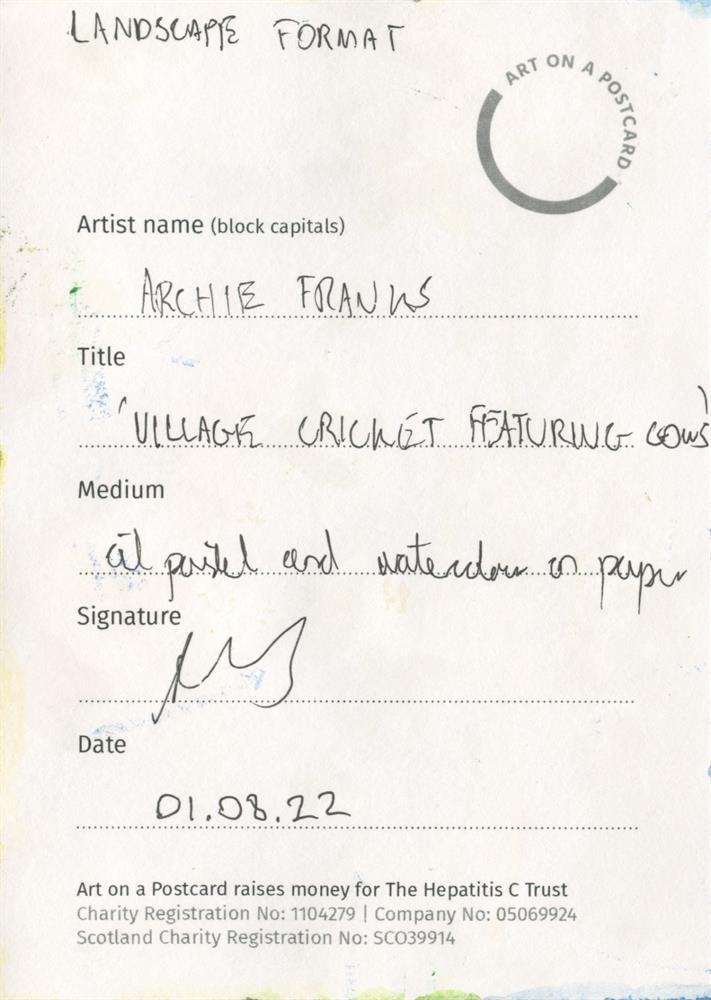 LANDSCAPE FORMAT
ART ON A POSTCARD
Artist name (block capitals)
ARCHIE FRANKS
Title
'VILLAGE CRICKET FEATURING COWS'
Medium
oil pastel and watercolour on paper
Signature
Date
01.08.22
Art on a Postcard raises money for The Hepatitis C Trust
Charity Registration No: 1104279 | Company No: 05069924
Scotland Charity Registration No: SCO39914